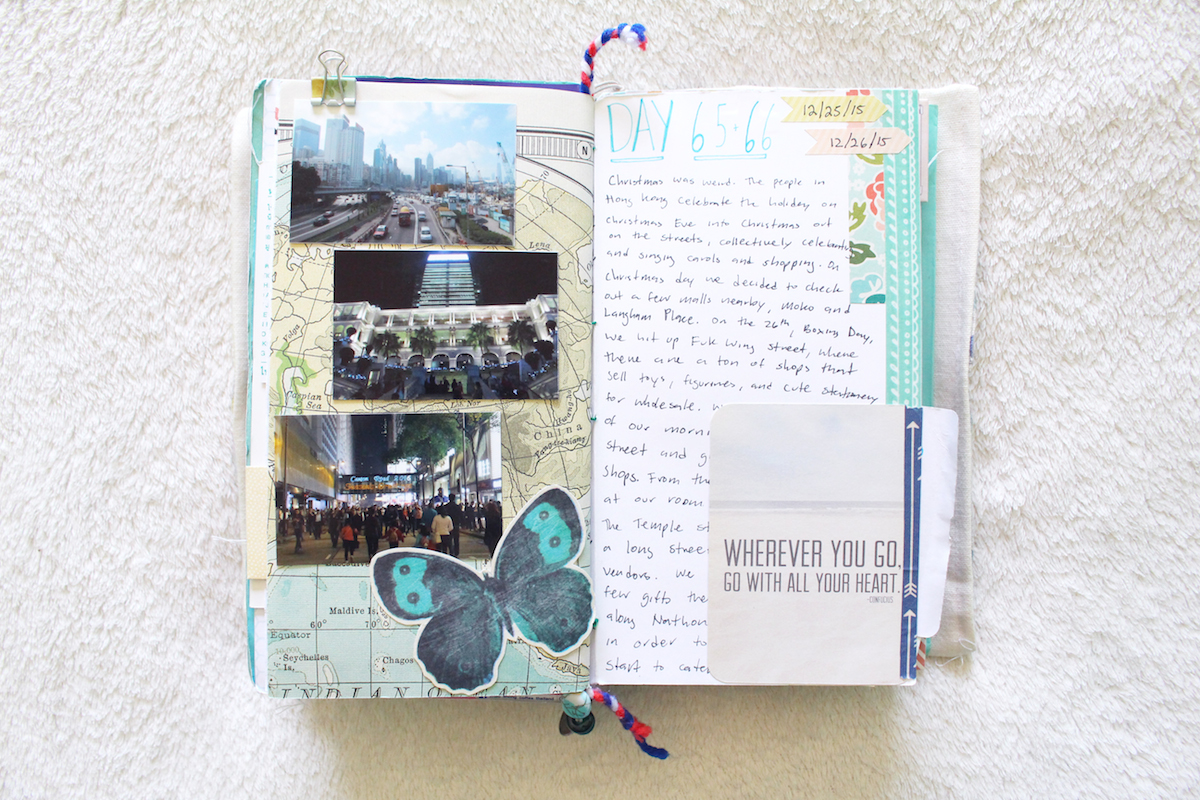 N
70
Lena
Volga
Caspian
Sea
China
Maldive Is.
60°
70
Equator
Seychelles
Is.
Chagos
INDIAN OCEAN
Java
DAY 65+66
12/25/15
12/26/15
Christmas was weird. The people in
Hong Kong celebrate the holiday on
Christmas Eve into Christmas out
on the streets, collectively celebrating
and singing carols and shopping. On
Christmas day we decided to check
out a few malls nearby, Moko and
Langham Place. On the 26th, Boxing Day,
we hit up Fuk Wing Street, where
there are a ton of shops that
sell toys, figurines, and cute stationery
for wholesale.
of our morni
street and g
shops. From the
at our room
The Temple st
a long stree
vendors. We
few gifts the
along Nathan
in order to
start to cater
WHEREVER YOU GO,
GO WITH ALL YOUR HEART.
-CONFUCIUS